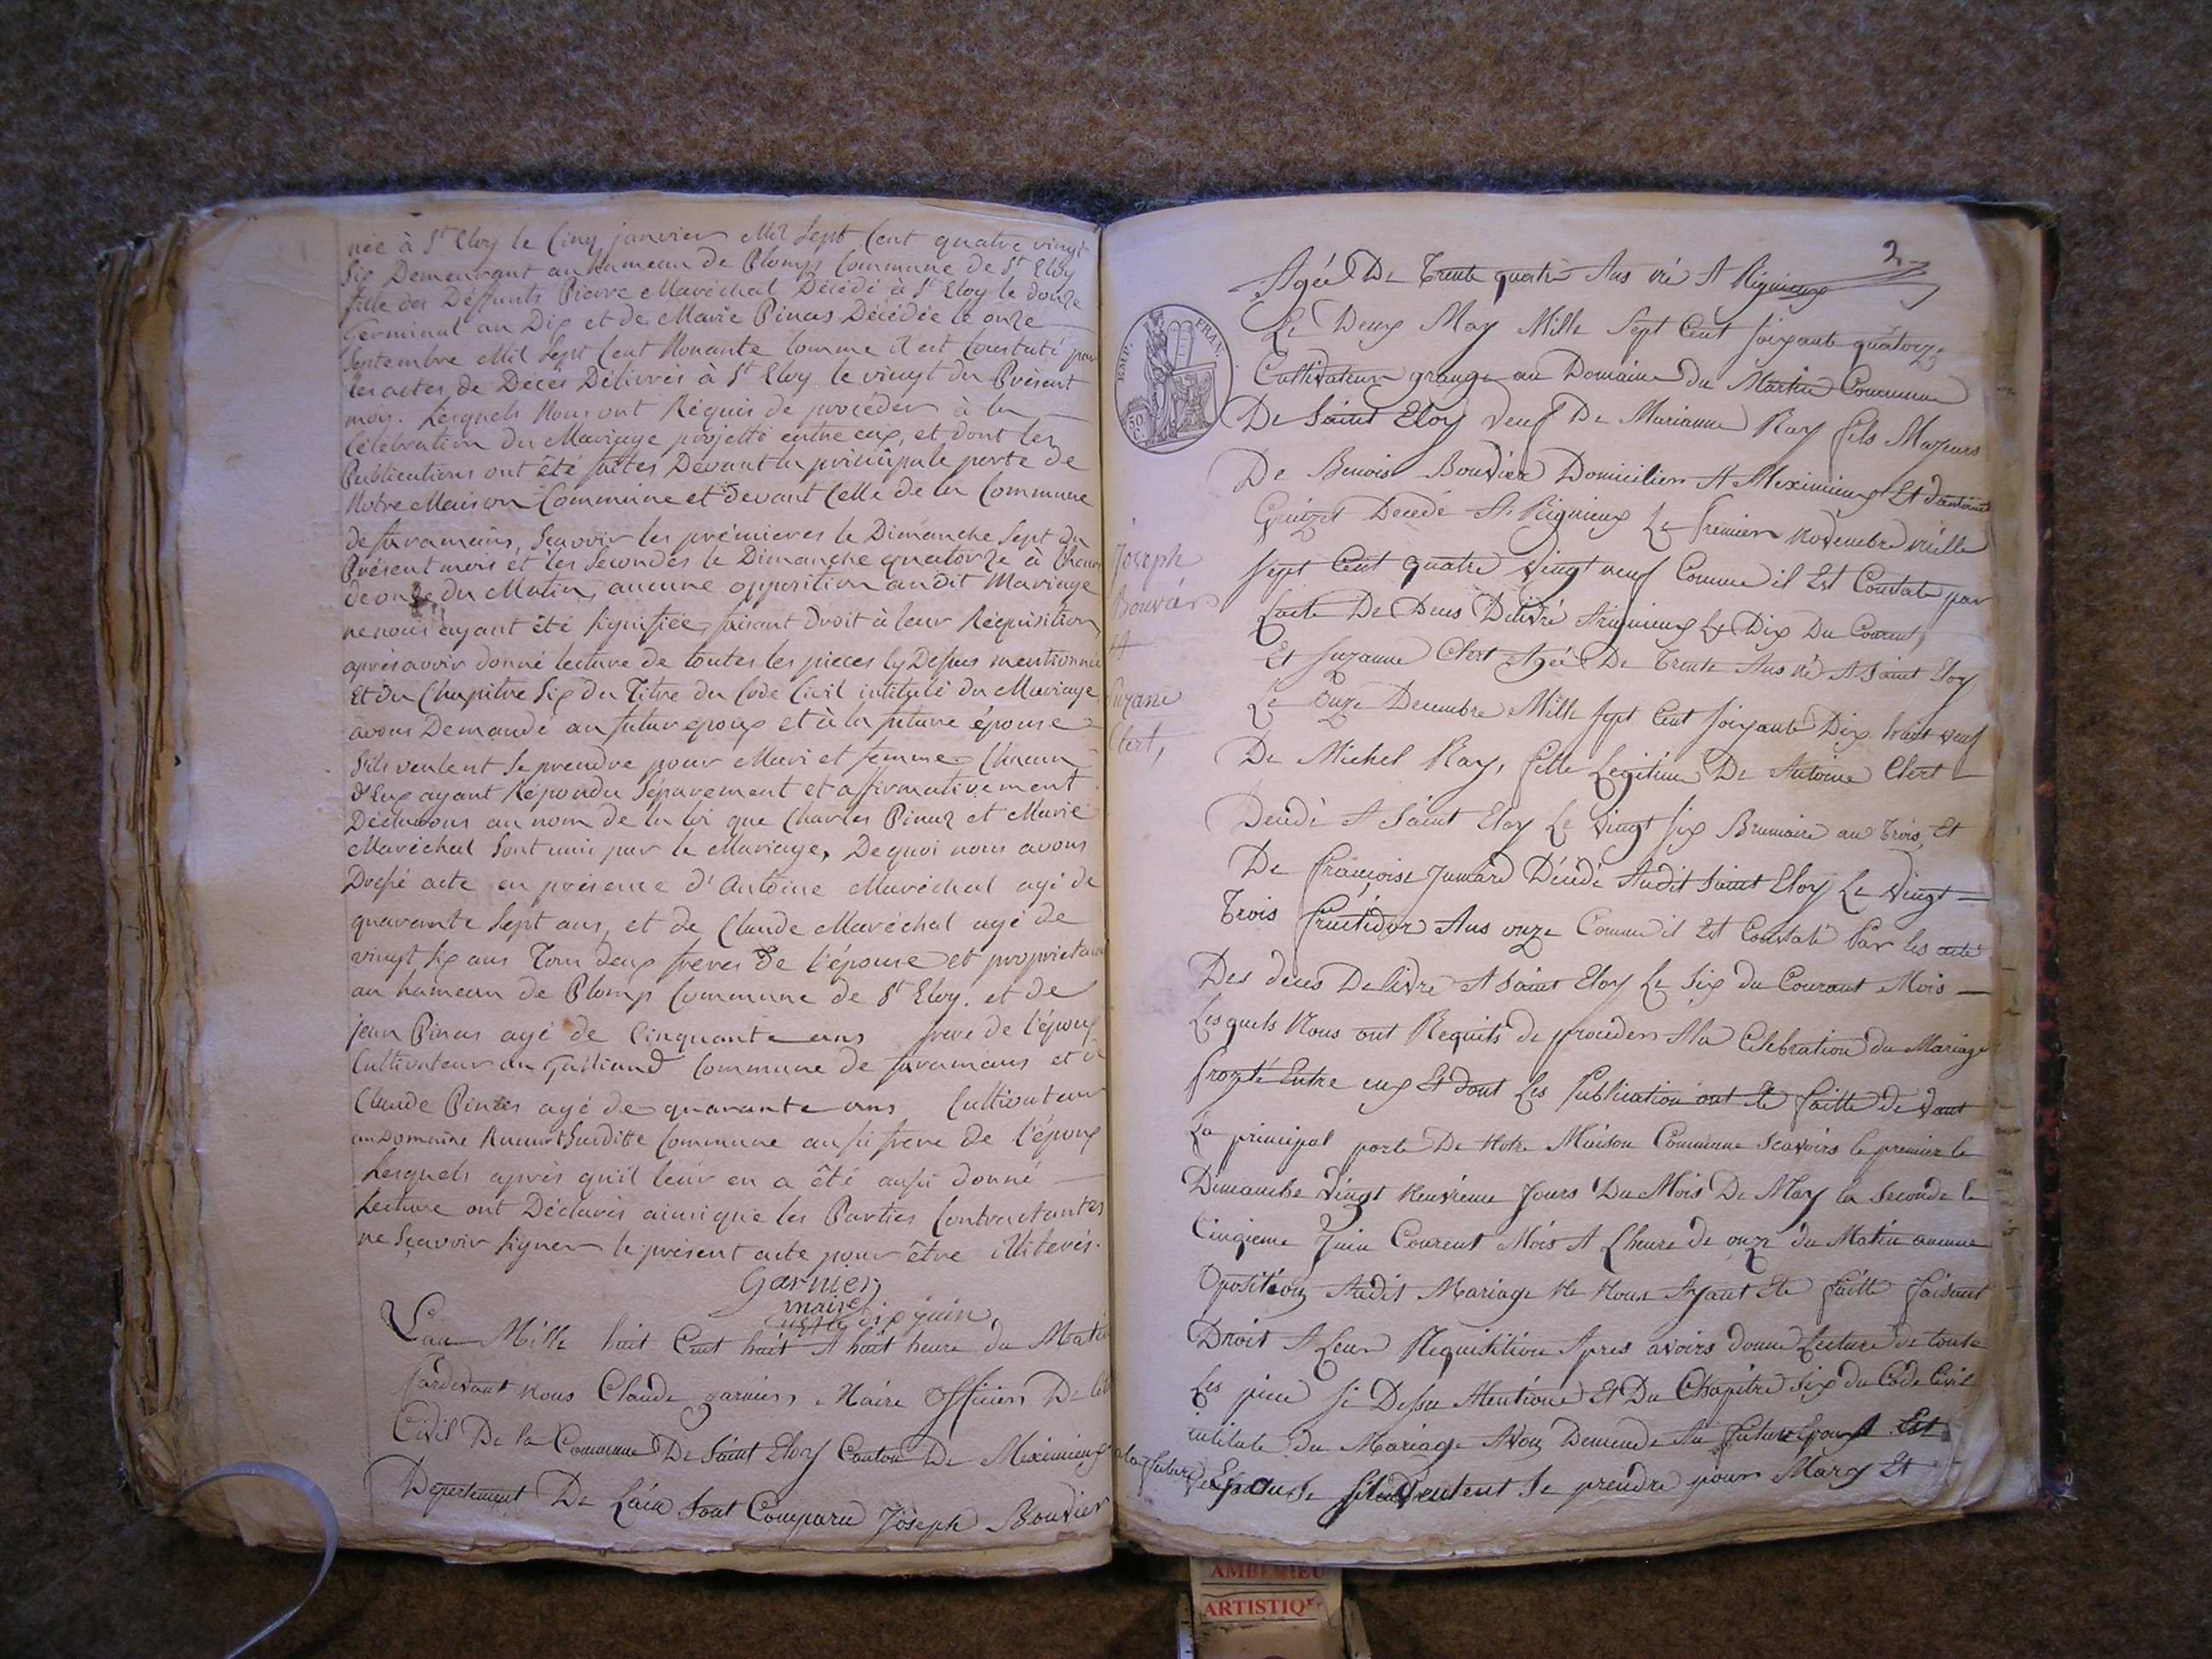 née à St Eloy le Cinq janvier Mil Sept Cent quatre vingt
Six Demeurant au hameau de Plomp Commune de St Eloy
fille des Déffunts Pierre Maréchal Décédé à St Eloy le douze
Germinal an Dix et de Marie Pinas Décédée le onze
Septembre Mil Sept Cent Nonante Comme il est Constaté par
les actes de Décès Délivrés à St Eloy le vingt du Présent
mois. Lesquels Nous ont Réquis de procéder à la
Célébration du Mariage projetté entre eux, et dont les
Publications ont été faites Devant la principale porte de
Notre Maison Commune et devant Celle de la Commune
de faramans, Sçavoir les prémieres le Dimanche Sept du
Présent mois et les Secondes le Dimanche quatorze à l'heure
de onze du Matin, aucune opposition audit Mariage
ne nous ayant été Signifiée, faisant droit à leur Réquisition,
après avoir donné lecture de toutes les pieces cy Dessus mentionnées
Et du Chapitre Six du Titre du Code Civil intitulé du Mariage,
avons Demandé au futur epoux et à la future épouse
S'ils veulent Se prendre pour Mari et femme. Chacun
d'Eux ayant Répondu Séparement et affirmativement
Déclarons au nom de la loi que Charles Pinaz et Marie
Maréchal Sont unis par le Mariage, De quoi nous avons
Dressé acte en présence d'Antoine Maréchal agé de
quarante Sept ans, et de Claude Maréchal agé de
vingt Six ans Tous deux freres de l'épouse et proprietaires
au hameau de Plomp Commune de St Eloy. et de
jean Pinas agé de Cinquante ans frere de l'époux
Cultivateur au Commune de faramans et de
Claude Pinas agé de quarante ans Cultivateur
au Domaine Susditte Commune aussi frere de l'époux
Lesquels après qu'il leur en a été aussi donné
Lecture ont Déclarés ainsi que les Parties Contractantes
ne Sçavoir Signer le présent acte pour être illiterés.
Garnier
maire
dix juin
L'an Mille huit Cent huit A huit heure du Matin
Pardevant Nous Claude garnier, Maire Officier De
Civil De la Commune De Saint Eloy Canton De Meximieux
Departement De Lain Sont Comparu Joseph Bouvier
2
Agée De Trente quatre Ans né A Rignieux
Le Deux May Mille Sept Cent Soixante quatorze
Cultivateur grange au Domaine du Martin Commune
De Saint Eloy veuf De Marianne Ray fils Majeurs
De Benois Bouvier Domicilier A Meximieux Et dantoinet
Decedé A Rignieux Le premier novembre mille
Sept Cent quatre vingt neuf Comme il Est Constate par
Lacte De Deces Delivré Arignieux Le Dix Du Courent,
Et Suzanne Clert Agée De Trente Ans né A Saint Eloy
Le Onze Decembre Mille Sept Cent Soixante Dix huit veuf
De Michel Ray, fille Legitime De Antoine Clert
Decedé A Saint Eloy Le vingt Six Brumaire an Trois, Et
De françoise Jumard Décédé Audit Saint Eloy Le vingt
Trois fructidor Ans onze Comme il Est Constaté Par les acte
Des deces Delivre A Saint Eloy Le Six du Courant Mois
Lesquels Nous ont Requits de proceder A la Celebration du Mariage
Entre eux Et dont Les Publication ont Ete faitte devant
La principal porte De Notre Maison Commune Scavoirs le premier le
Dimanche vingt neuvieme Jours Du Mois De May la Seconde le
Cinqieme Juin Courent Mois A Lheure de onze du Matin aucune
Oposition Audit Mariage Ne Nous Ayant Ete faitte faisant
Droit A Leur Requisition Apres avoirs donne Lecture de toute
Les piece Si Dessu Mentione Et Du Chapitre Six du Code Civil
intitule du Mariage Avons Demende Au futur Epoux Est
a la future Epouse Sils veulent Se prendre pour Mary Et
Joseph
Bouvier
et
Suzane
Clert,
EMP. FRAN.
50
C.
AMBERIEU
ARTISTIQ